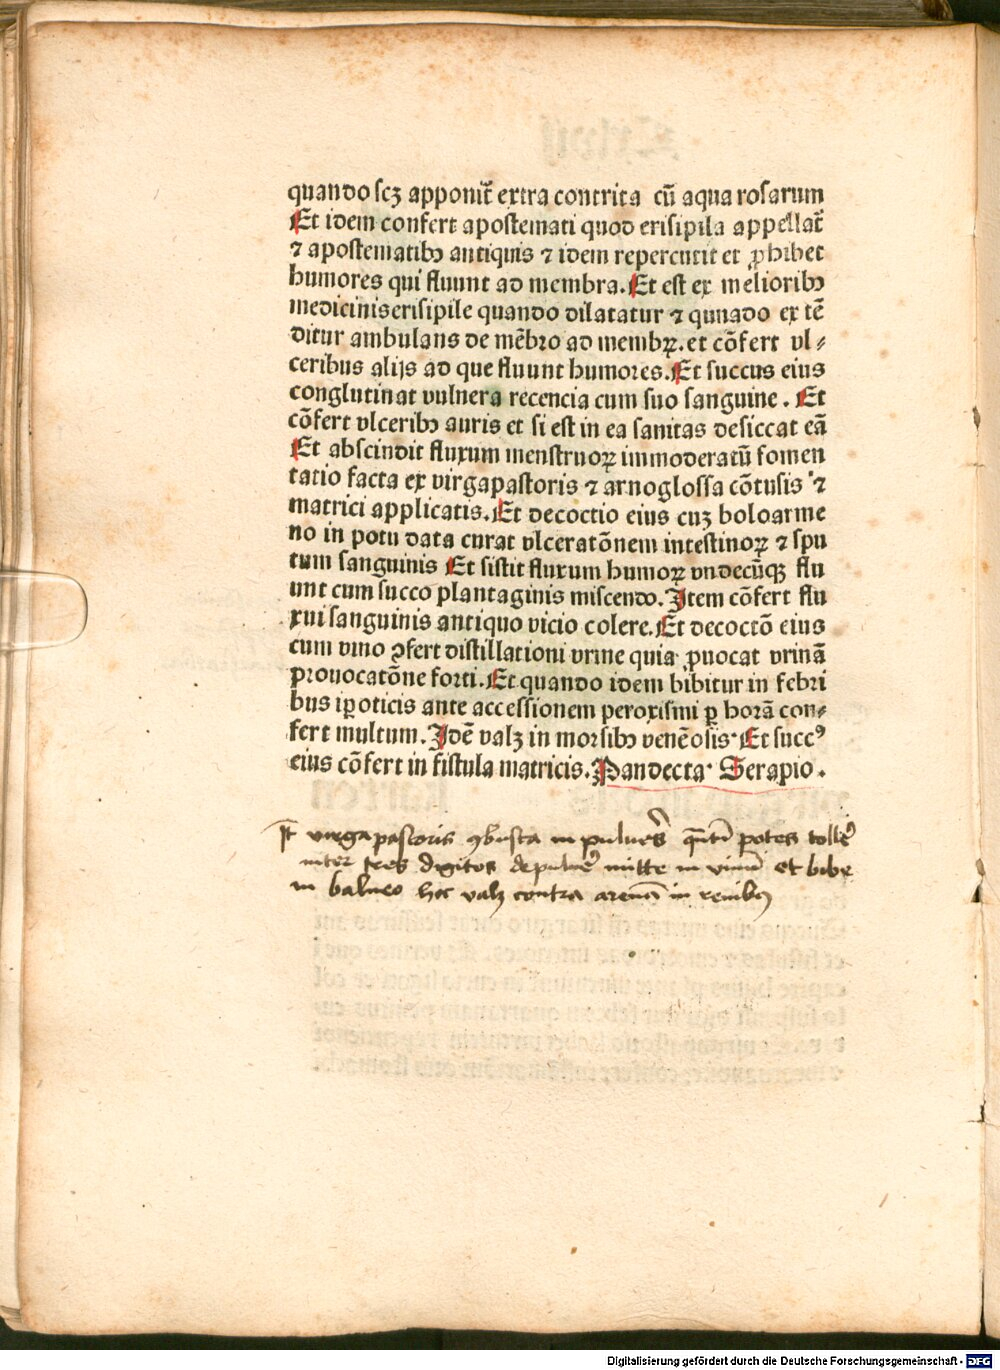 quando scꝫ apponit̃ extra contrita cũ aqua rosarum
Et idem confert apostemati quod erisipila appellat̃
⁊ apostematibꝫ antiquis ⁊ idem repercutit et ꝓhibet
humores qui fluunt ad membra. Et est ex melioribꝫ
medicinis erisipile quando dilatatur ⁊ qunado ex tẽ
ditur ambulans de mẽbro ad membꝝ. et cõfert vl⸗
ceribus alijs ad que fluunt humores. Et succus eius
conglutinat vulnera recencia cum suo sanguine. Et
cõfert vlceribꝫ auris et si est in ea sanitas desiccat eã
Et abscindit fluxum menstruoꝝ immoderatũ fomen
tatio facta ex virgapastoris ⁊ arnoglossa cõtusis ⁊
matrici applicatis. Et decoctio eius cuꝫ boloarme
no in potu data curat vlceratõnem intestinoꝝ ⁊ spu
tum sanguinis Et sistit fluxum humoꝝ vndecũqꝫ flu
unt cum succo plantaginis miscendo. Item cõfert flu
xui sanguinis antiquo vicio colere. Et decoctõ eius
cum vino ꝯfert distillationi vrine quia ꝓuocat vrinã
prouocatõne forti. Et quando idem bibitur in febri
bus ipoticis ante accessionem peroxismi ꝑ horã con⸗
fert multum. Idẽ valꝫ in morsibꝫ venẽosis. Et succꝰ
eius cõfert in fistula matricis. Pandecta. Serapio.
It̃ virga pastoris ꝯbusta in pulueṝs qñtũ potes tolle᷑
inter tres digitos de pulue᷑ mitte in vinũ et bibe
in balneo hoc valꝫ contra arenã in renibꝫ
Digitalisierung gefördert durch die Deutsche Forschungsgemeinschaft - DFG